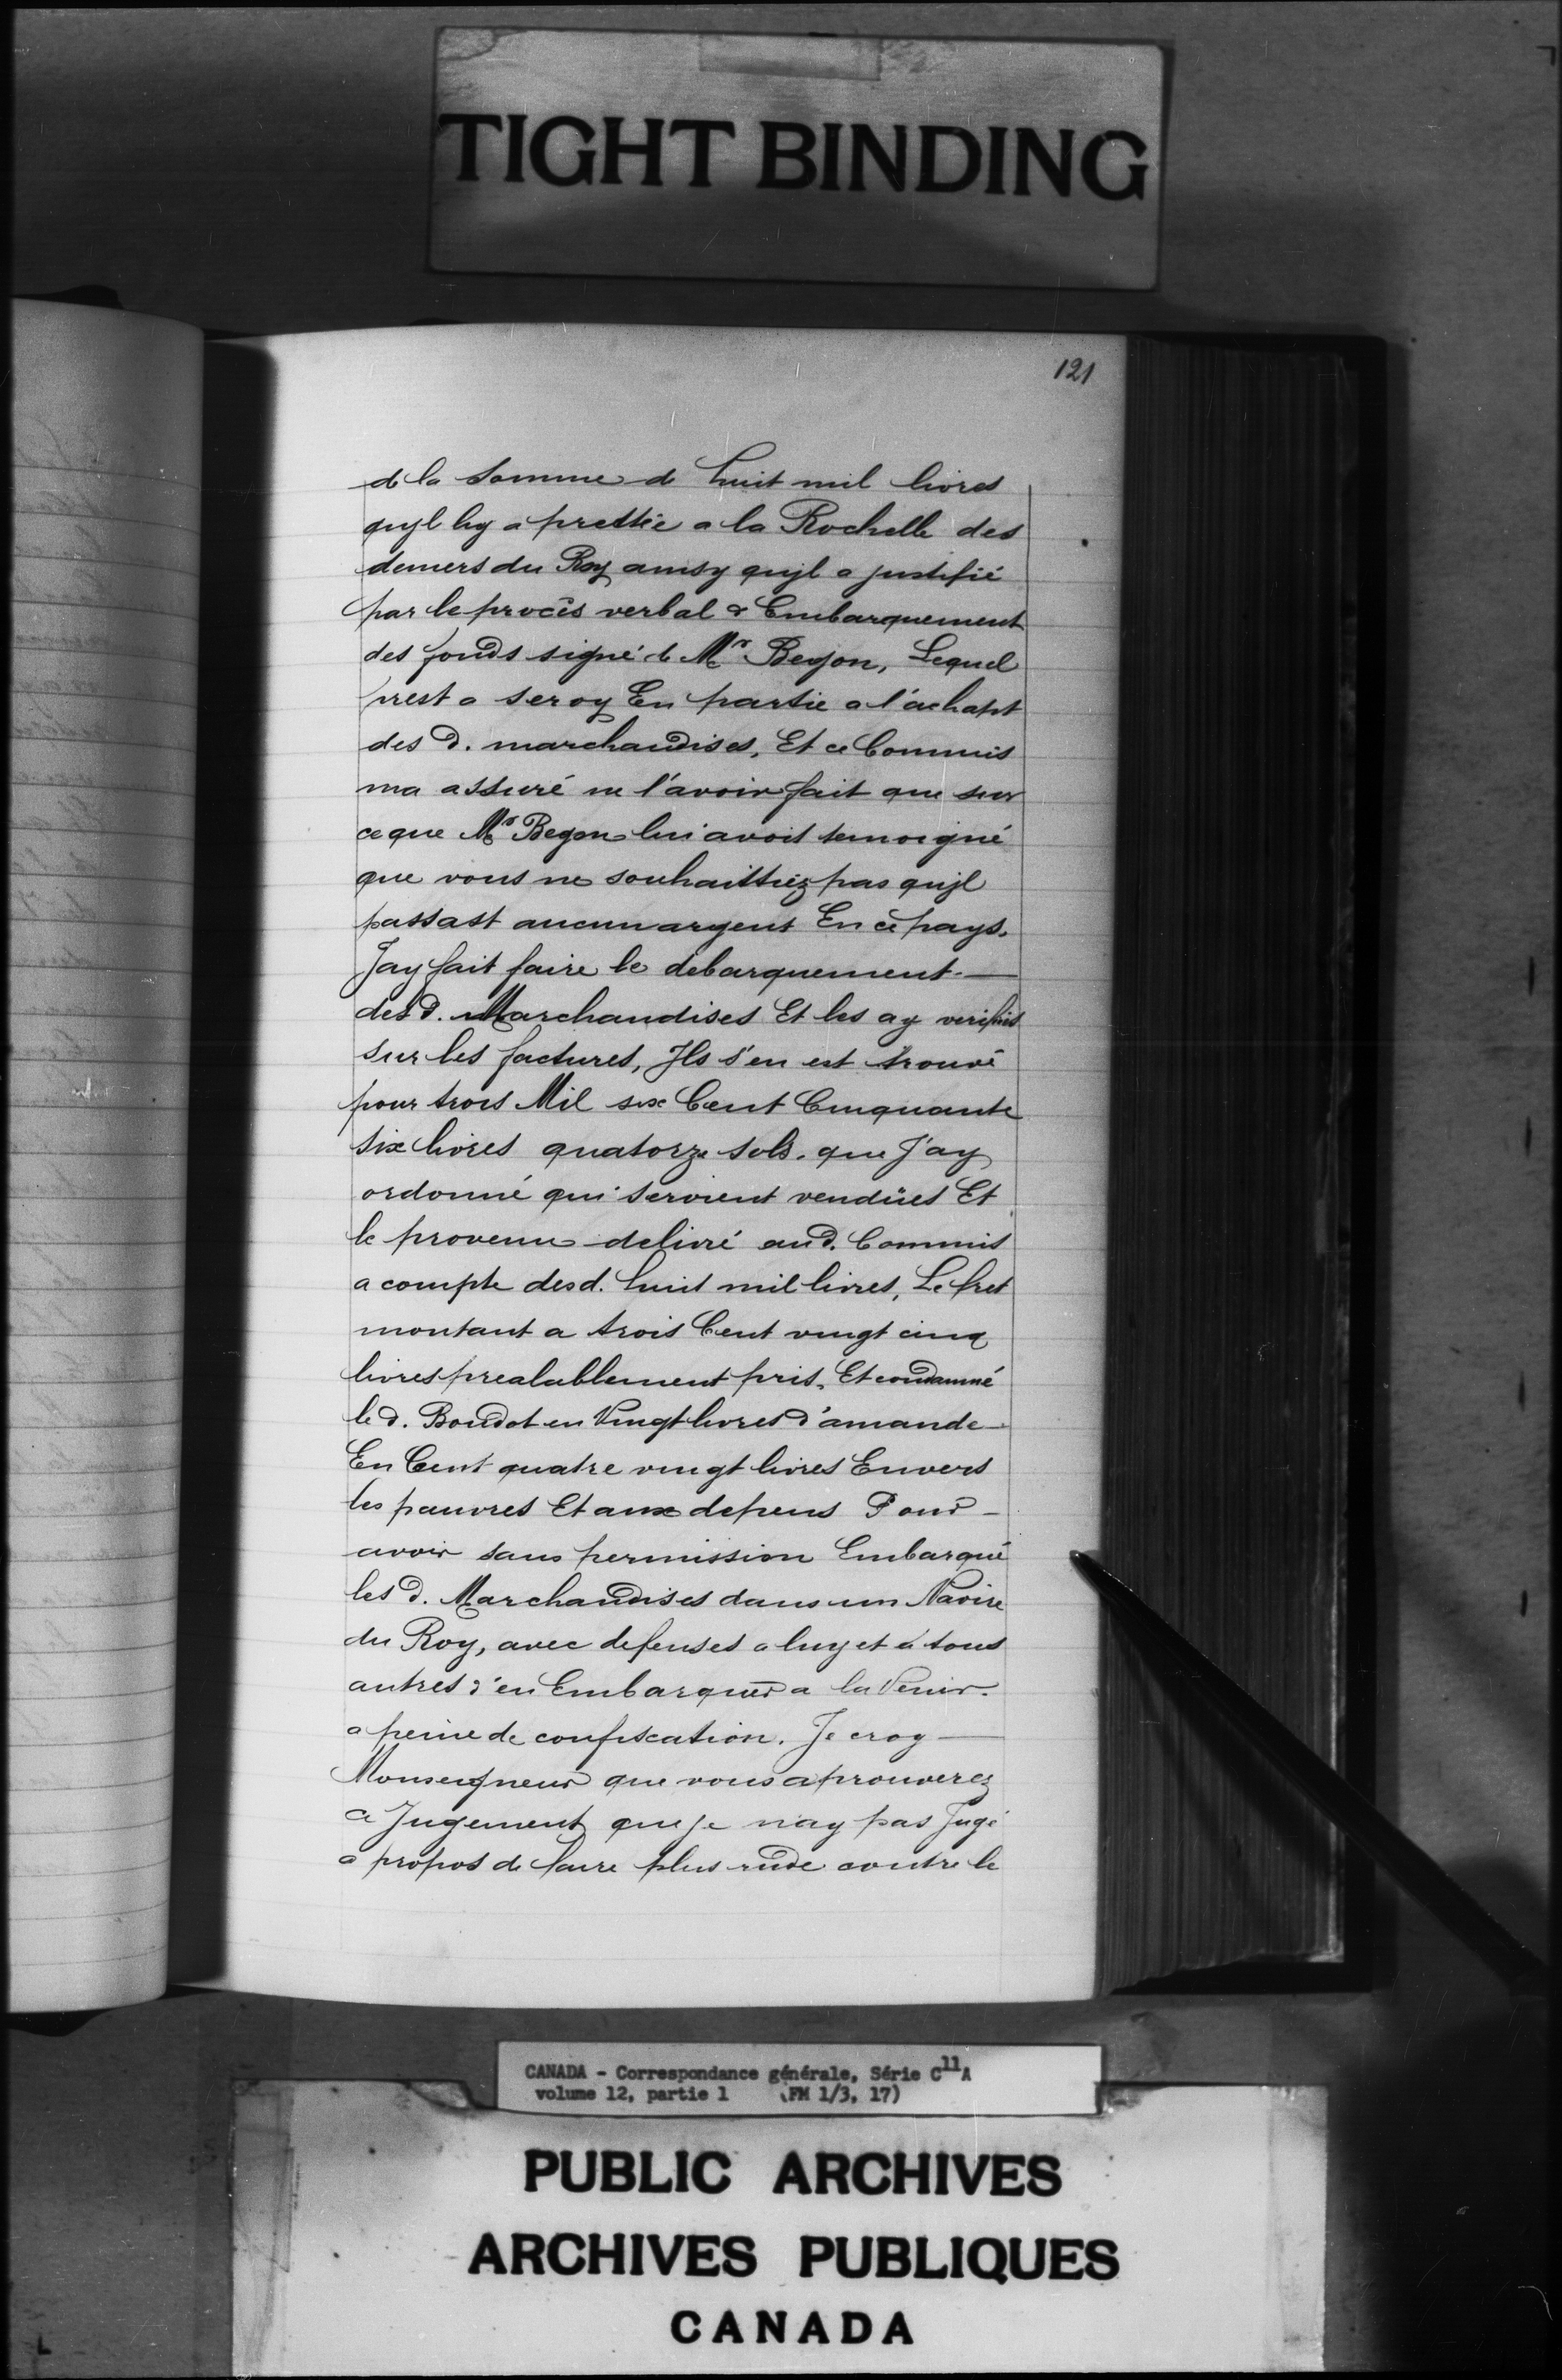 TIGHT BINDING
121
de la Somme de huit mil livres
qujl luy a prettée a la Rochelle des
deniers du Roy ainsy qujl a justifié
par le procès verbal d'Embarquement
des fonds signé de Mr Begon, Lequel
prest a servy En partie a l'achapt
des d. marchandises, Et ce Commis
ma assuré ne l'avoir fait que sur
ce que Mr Begon lui avoit temoigné
que vous ne souhaittiez pas qujl
passast aucun argent En ce pays.
Jay fait faire le debarquement.
des d. Marchandises Et les ay verifiés
sur les factures, Jls s'en est trouvé
pour trois Mil six Cent Cinquante
six livres quatorze sols. que J'ay
ordonné qui seroient vendües Et
le provenu delivré aud. Commis
a compte desd. huit mil livres, Le fret
montant a trois Cent vingt cinq
livres prealablement pris, Et condamné
le d. Boudot en Vingt livres d'amande
En Cent quatre vingt livres Envers
les pauvres Et aux depens Pour
avoir sans permission Embarqué
les d. Marchandises dans un Navire
du Roy, avec defenses a luy et à tous
autres d'en Embarquer a la Venir.
a peine de confiscation. Je croy
Monseigneur que vous aprouverez
ce Jugement que je nay pas Jugé
a propos de faire plus rude contre le
CANADA - Correspondance générale, Série C11A
volume 12, partie 1 (FM 1/3, 17)
PUBLIC ARCHIVES
ARCHIVES PUBLIQUES
CANADA